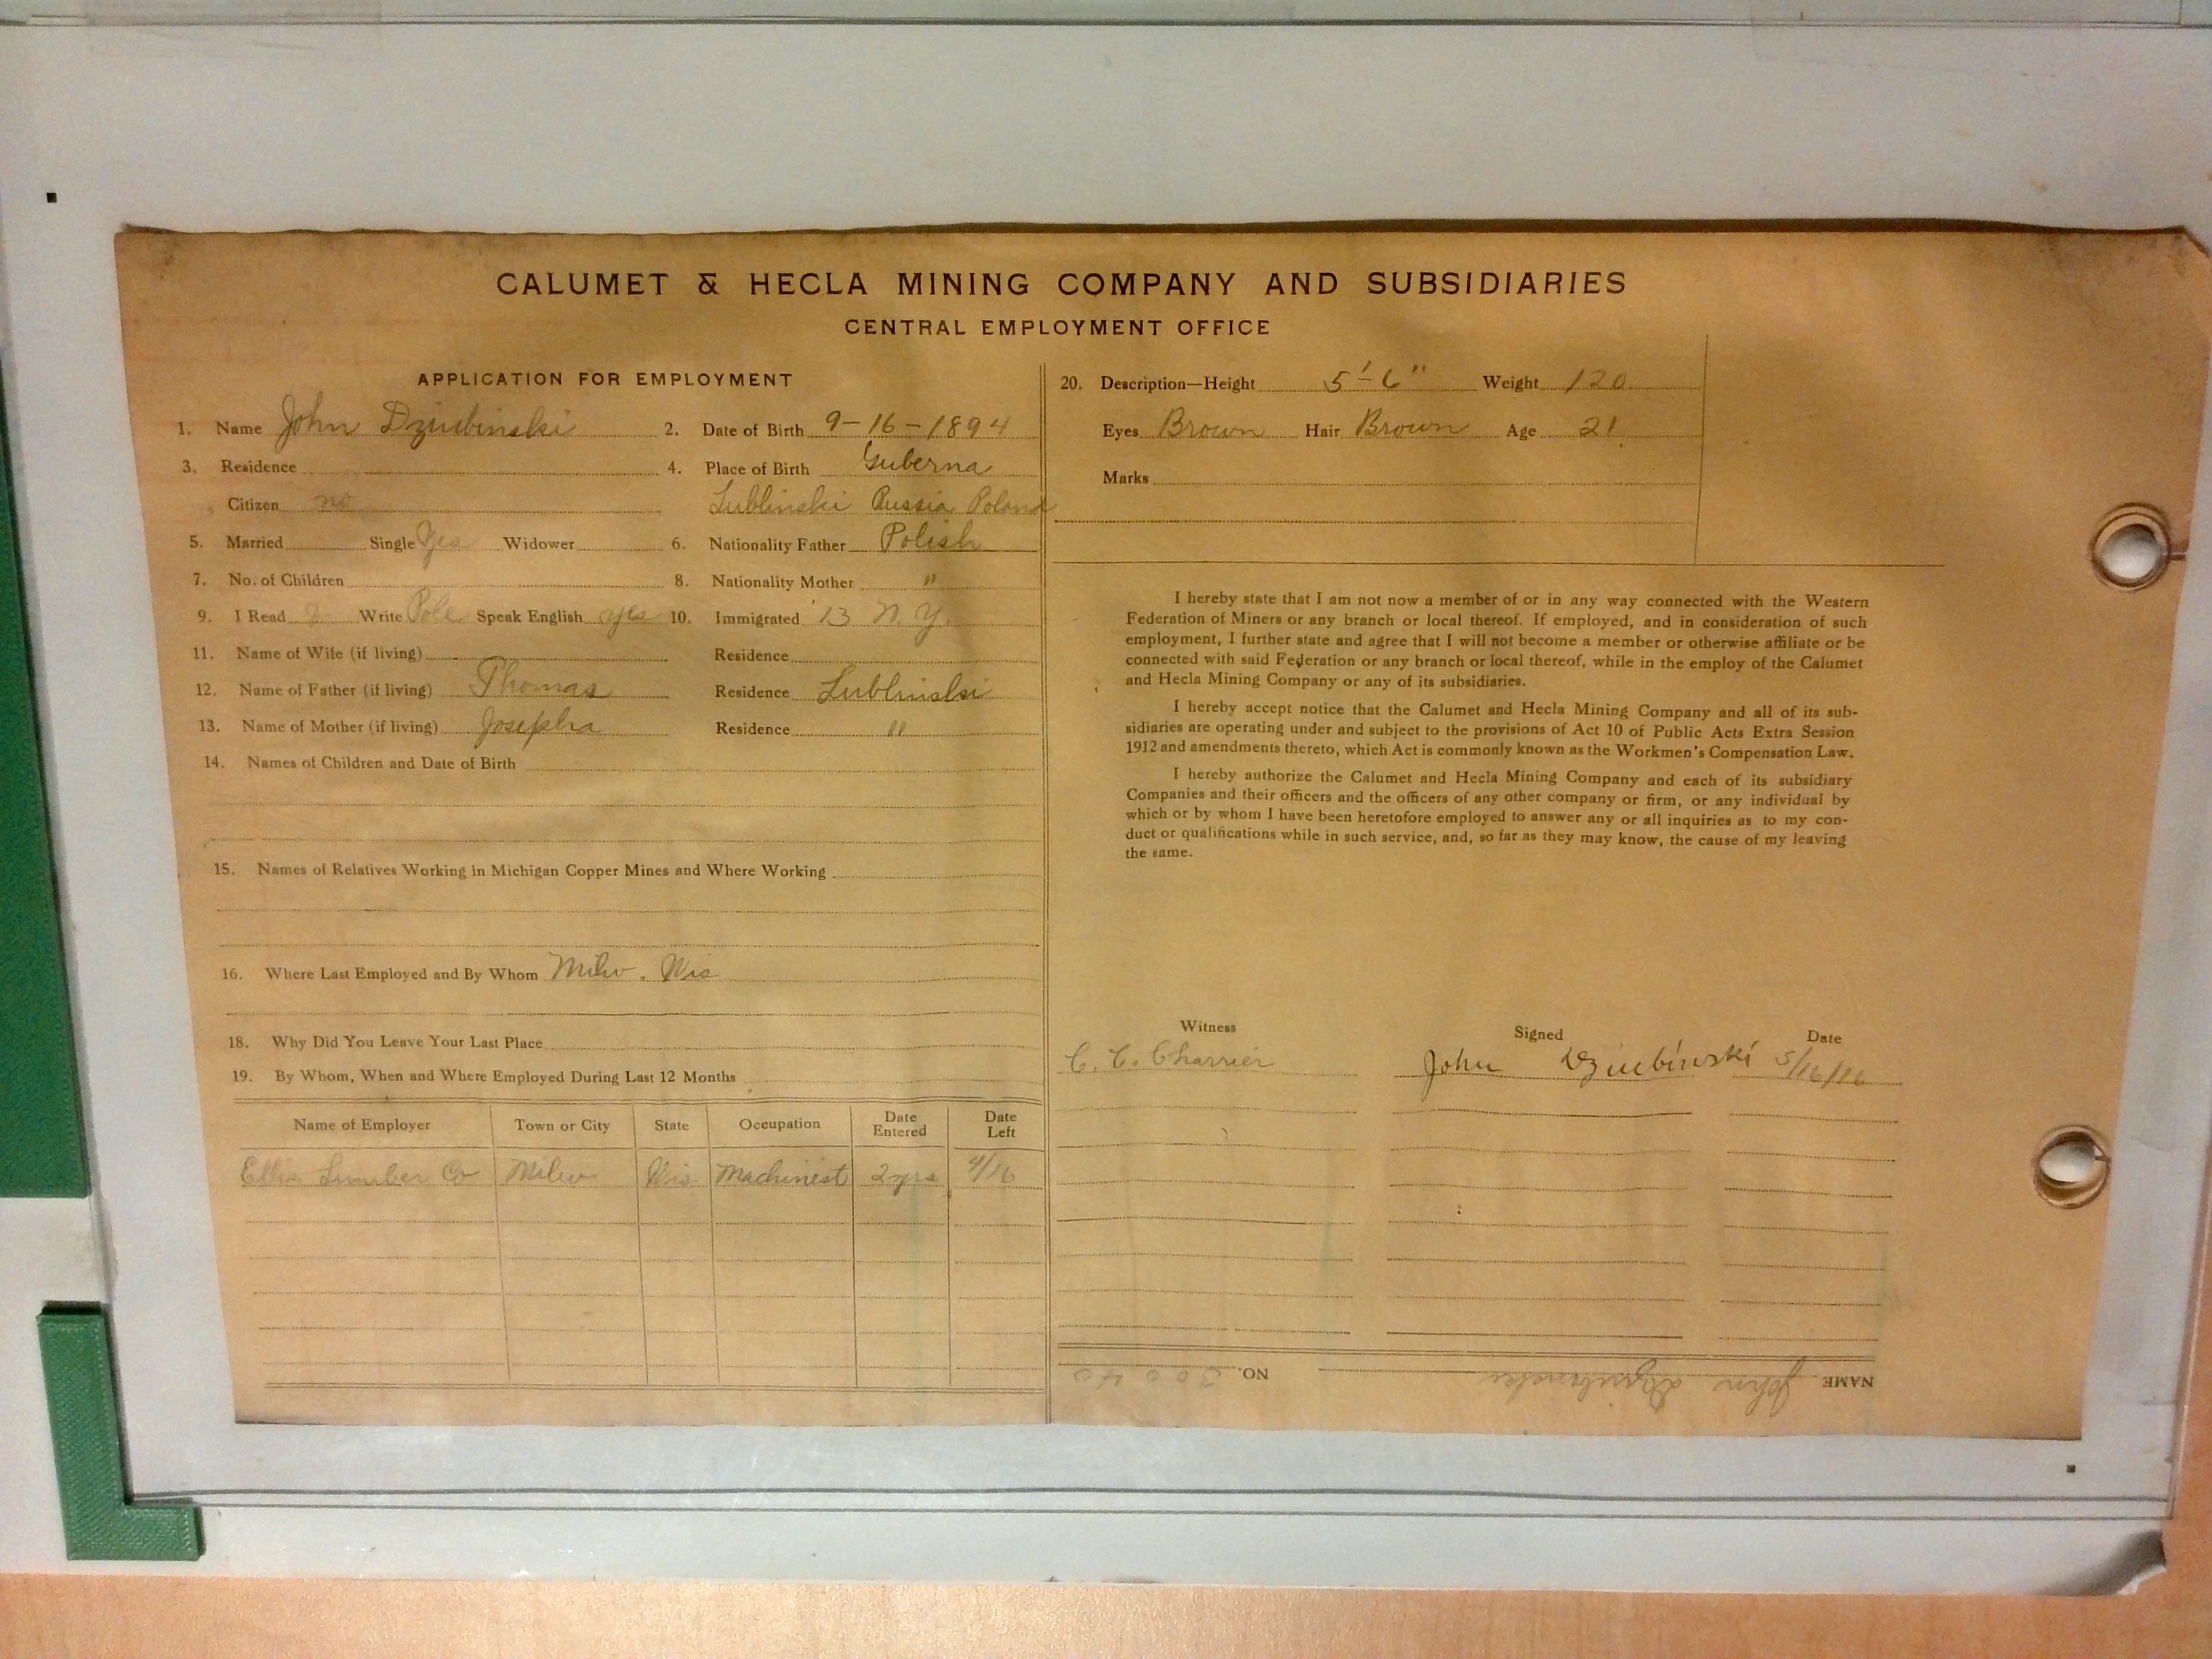 CALUMET & HECLA MINING COMPANY AND SUBSIDIARIES
CENTRAL EMPLOYMENT OFFICE
APPLICATION FOR EMPLOYMENT
1. Name John Dziubinski 2. Date of Birth 9-16-1894
3. Residence 4. Place of Birth Guberna
Citizen no Lublinski Russia Poland
5. Married Single Yes Widower 6. Nationality Father Polish
7. No. of Children 8. Nationality Mother "
9. I Read Write Pole Speak English yes 10. Immigrated '13 N.Y.
11. Name of Wife (if living) Residence
12. Name of Father (if living) Thomas Residence Lublinski
13. Name of Mother (if living) Josepha Residence "
14. Names of Children and Date of Birth
15. Names of Relatives Working in Michigan Copper Mines and Where Working
16. Where Last Employed and By Whom Milw. Wis
18. Why Did You Leave Your Last Place
19. By Whom, When and Where Employed During Last 12 Months
Name of Employer Town or City State Occupation Date Entered Date Left
Lumber Co Milw Wis Machinest 2yrs 4/16
20. Description—Height 5'-6" Weight 120
Eyes Brown Hair Brown Age 21
Marks
I hereby state that I am not now a member of or in any way connected with the Western
Federation of Miners or any branch or local thereof. If employed, and in consideration of such
employment, I further state and agree that I will not become a member or otherwise affiliate or be
connected with said Federation or any branch or local thereof, while in the employ of the Calumet
and Hecla Mining Company or any of its subsidiaries.
I hereby accept notice that the Calumet and Hecla Mining Company and all of its sub-
sidiaries are operating under and subject to the provisions of Act 10 of Public Acts Extra Session
1912 and amendments thereto, which Act is commonly known as the Workmen's Compensation Law.
I hereby authorize the Calumet and Hecla Mining Company and each of its subsidiary
Companies and their officers and the officers of any other company or firm, or any individual by
which or by whom I have been heretofore employed to answer any or all inquiries as to my con-
duct or qualifications while in such service, and, so far as they may know, the cause of my leaving
the same.
Witness Signed Date
C. C. Charrier John Dziubinski 5/16/16
NAME John Dziubinski NO. 30040